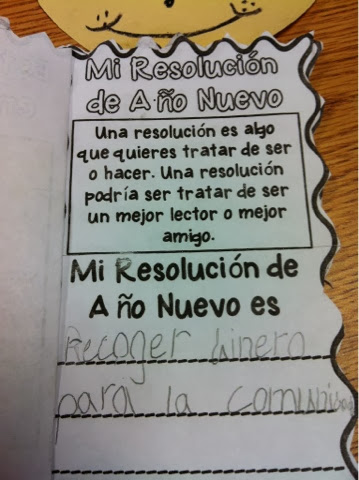 Mi Resolución
de Año Nuevo
Una resolución es algo
que quieres tratar de ser
o hacer. Una resolución
podría ser tratar de ser
un mejor lector o mejor
amigo.
Mi Resolución de
Año Nuevo es
Recoger dinero
para la comunidad